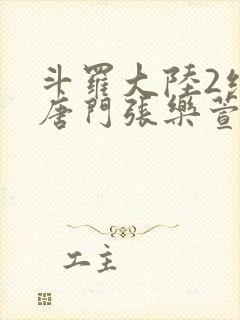 斗羅大陸2絕
唐門張樂萱
工主